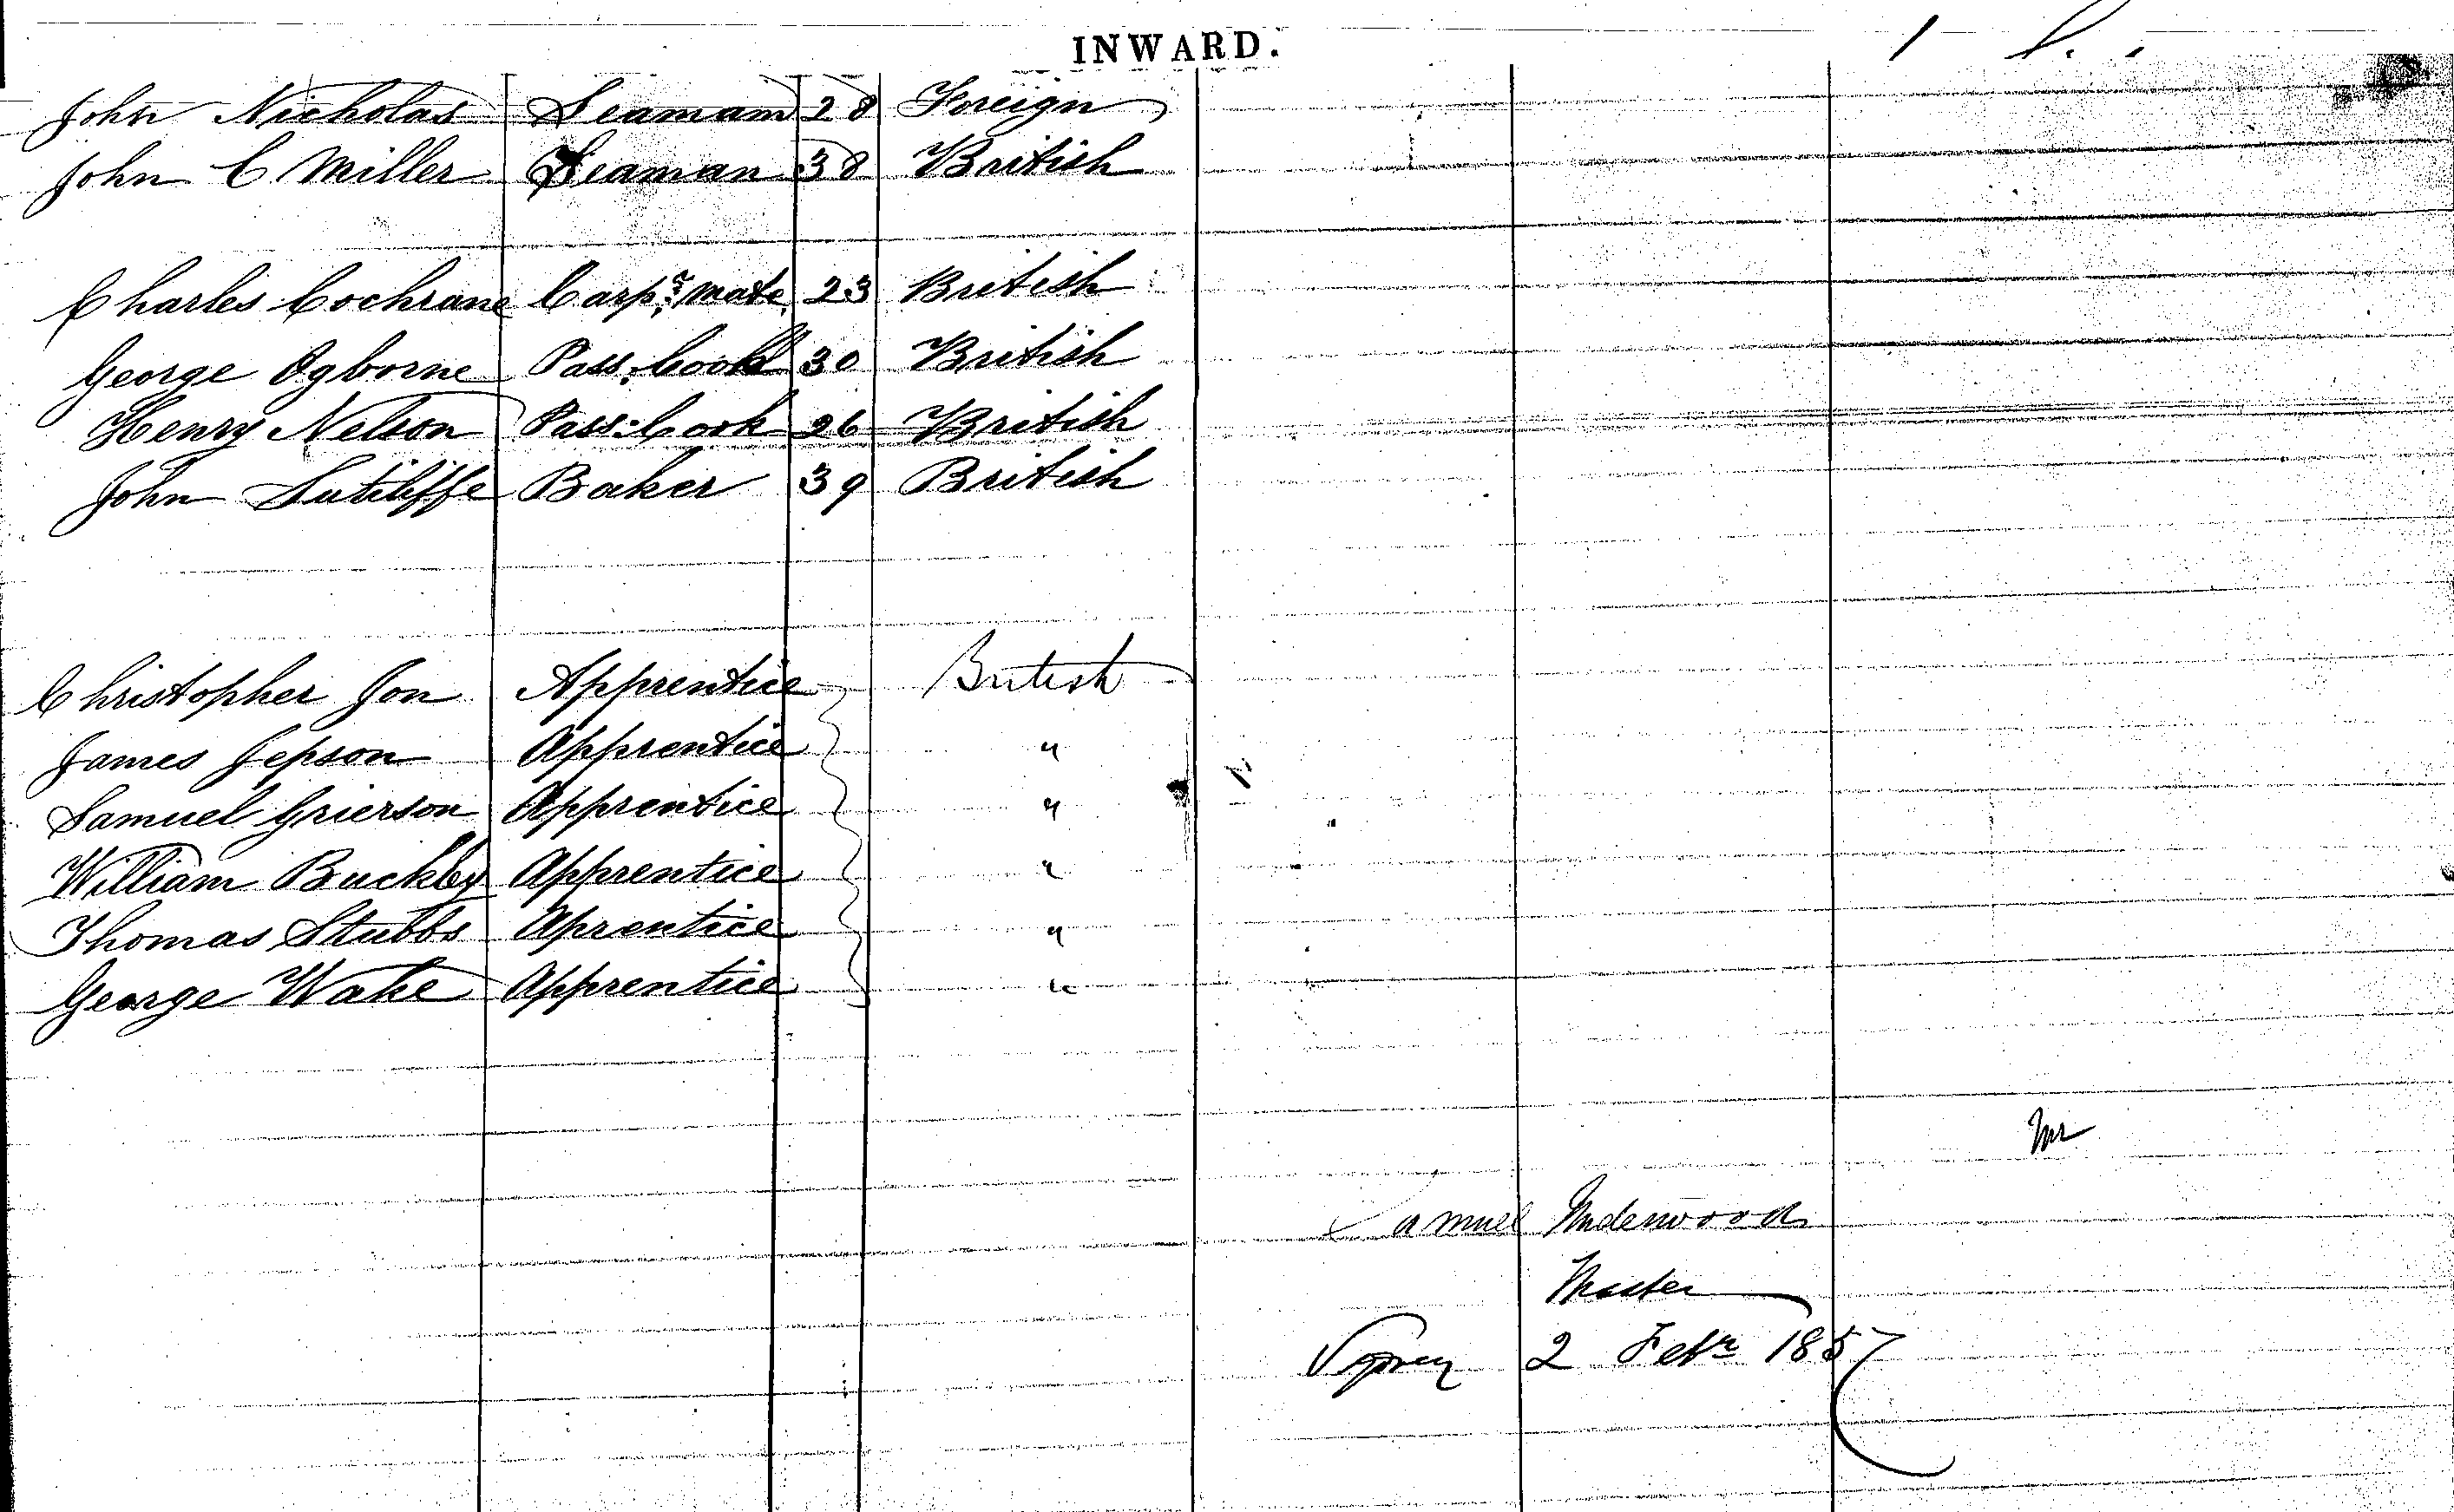 INWARD.
John Nicholas Seaman 28 Foreign
John C Miller Seaman 38 British
Charles Cochrane Carpr. mate 23 British
George Ogborne Pass. Cook 30 British
Henry Nelson Pass: Cook 26 British
John Sutcliffe Baker 39 British
Christopher Jon Apprentice British
James Jepson Apprentice "
Samuel Grierson Apprentice "
William Buckby Apprentice "
Thomas Stubbs Aprentice "
George Wake Apprentice "
Samuel Underwood
Master
2 Febr 1857